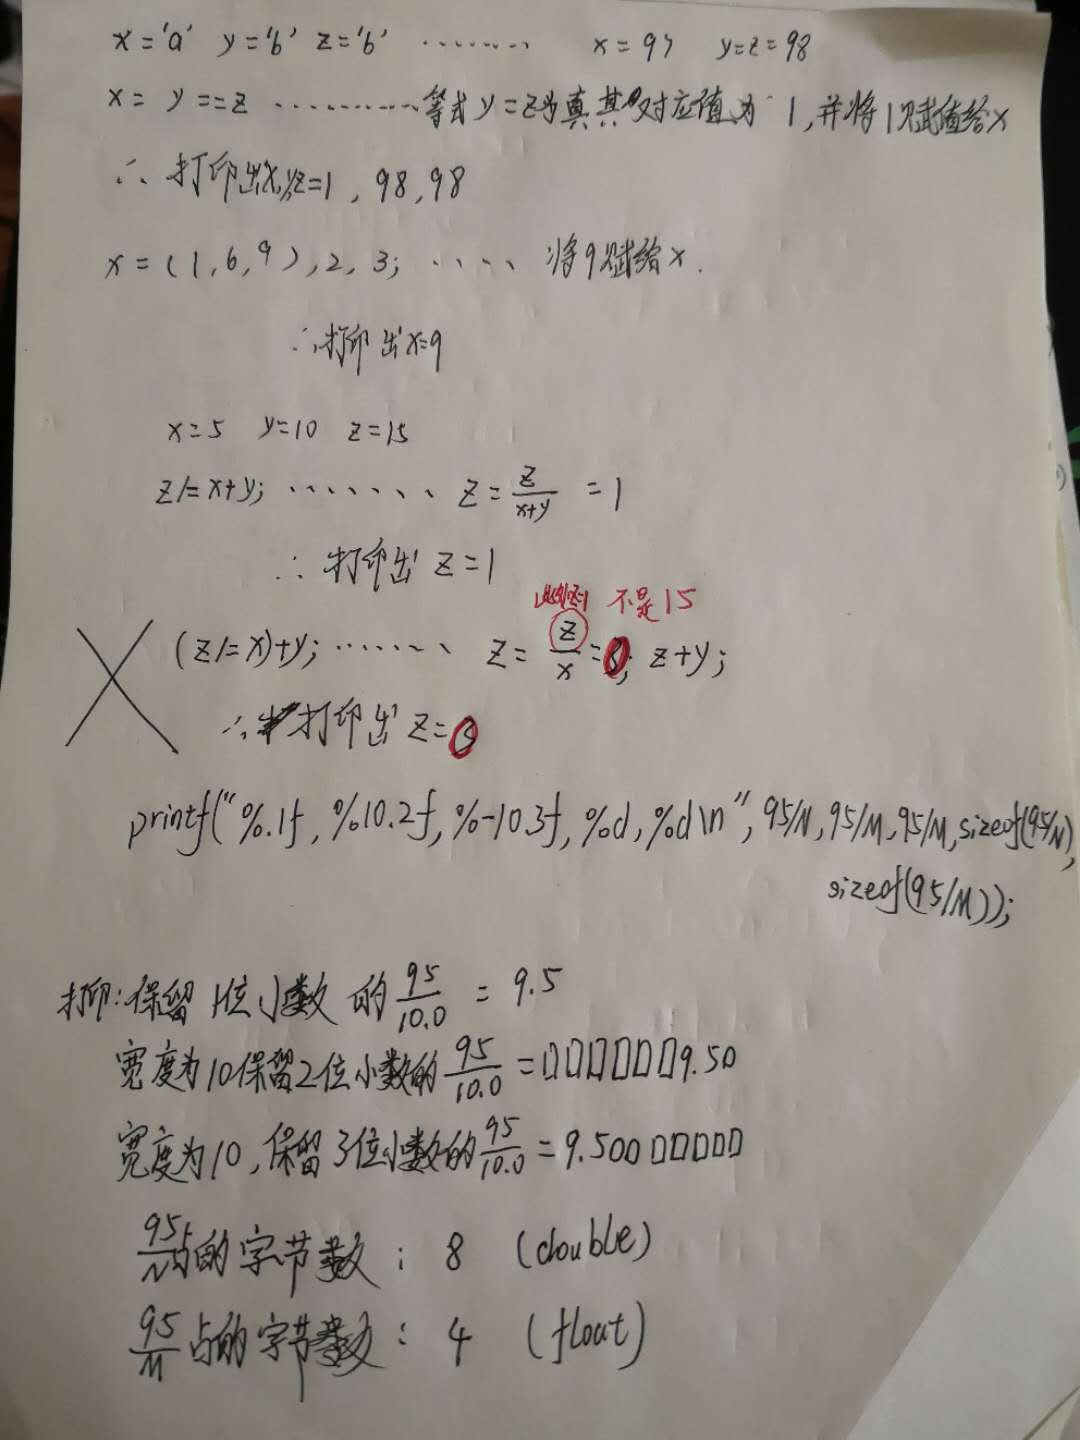 x='a' y='b' z='b' ········ x=97 y=z=98
x= y==z ··········等式y=z为真其对应值为 1,并将1赋值给x
∴ 打印出x,y,z=1, 98, 98
x=(1,6,9),2,3; ···· 将9赋给x.
∴打印出x=9
x=5 y=10 z=15
z/=x+y; ······· z=z/(x+y) =1
∴ 打印出 z=1
此时z=1 不是15
(z/=x)+y; ······· z= z/x = ; z+y;
∴ 打印出 z=
printf("%.1f, %10.2f, %-10.3f, %d, %d\n", 95/N, 95/M, 95/M, sizeof(95/N),
sizeof(95/M));
打印:保留1位小数 的 95/10.0 = 9.5
宽度为10保留2位小数的 95/10.0 =□□□□□□9.50
宽度为10,保留3位小数的 95/10.0 =9.500□□□□□
95/N占的字节数: 8 (double)
95/M占的字节数: 4 (float)